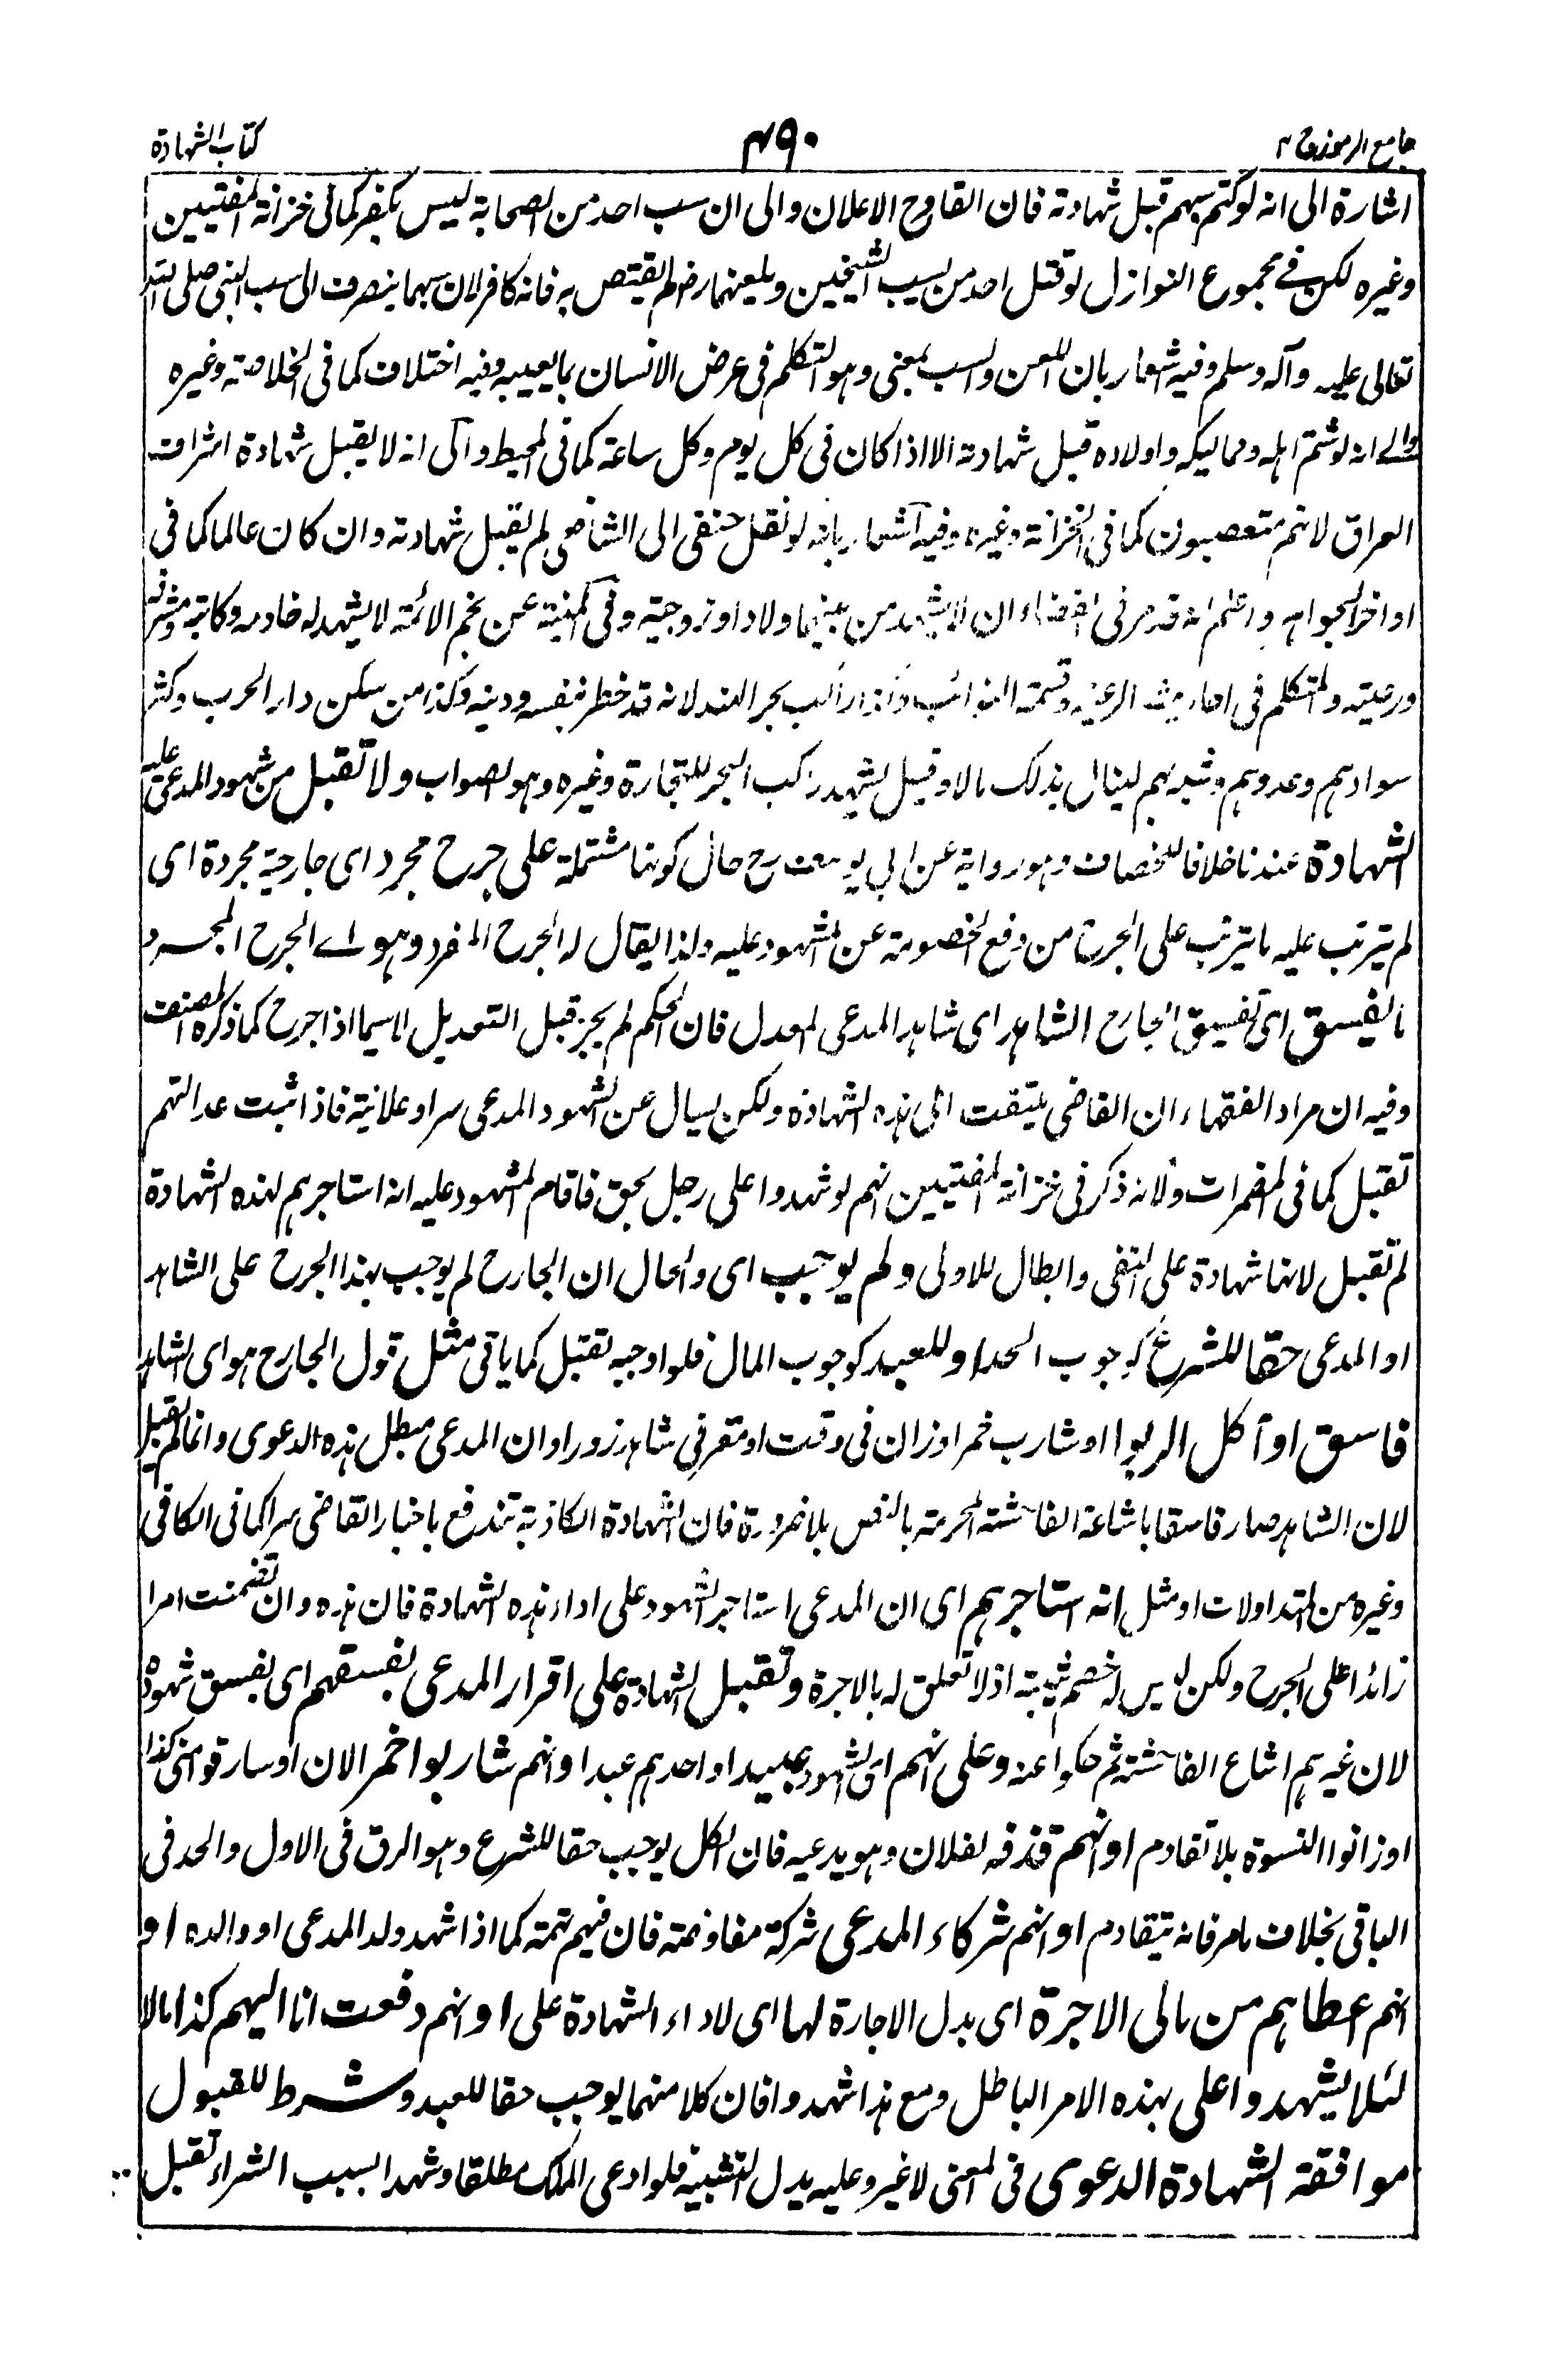 جامع الرموز ج ۲
۴۹۰
كتاب الشهادة
اشارة الى انه لو كتم سبهم قبل شهادته فان القادح الاعلان والى ان سب احد من الصحابة ليس بكفر كما فى خزانة المفتيين
وغيره لكن فے مجموع النوازل لو قتل احد من يسب الشيخين ويلعنهما رض لم يقتص به فانه كافر لان سبهما ينصرف الى سب النبى صلى الله
تعالى عليه وآله وسلم وفيه اشعار بان اللعن والسب بمعنى وهو التكلم فى عرض الانسان بما يعيبه وفيه اختلاف كما فى الخلاصة وغيره
والے انه لو شتم اهله ومماليكه واولاده قبل شهادته الا اذا كان فى كل يوم وكل ساعة كما فى المحيط والى انه لا يقبل شهادة اشراف
العراق لانهم متعصبون كما فى الخزانة وغيره وفيه اشعار بانه لو نقل حنفى الى الشافعى لم يقبل شهادته وان كان عالما كما فى
اواخر الجواهر واعلم انه قد مر فى القضاء ان لا يشهد من بينهما ولاد او زوجية وفى المنية عن نجم الائمة لا يشهد له خادمه وكاتبه
ورعيته والمتكلم فى الرعية وقسمة النوائب وكذا راكب بحر الهند لانه قد خطر بنفسه ودينه وكذا من سكن دار الحرب وكثر
سوادهم وعددهم وشبه بهم لينال بذلك مالا وقيل يشهد راكب البحر للتجارة وغيره وهو الصواب ولا تقبل من شهود المدعى عليه
الشهادة عندنا خلافا للخصاف وهو رواية عن ابي يوسف رح حال كونها مشتملة على جرح مجرد اى جارحية مجردة اى
لم يترتب عليه ما يترتب على الجرح من دفع الخصومة عن المشهود عليه ولذا يقال له الجرح المفرد وهو اے الجرح المجرد
ما لفيسق اى تفسيق الجارح الشاهد اى شاهد المدعى المعدل فان الحكم لم يجز قبل التعديل لاسيما اذا جرح كما ذكره المصنف
وفيه ان مراد الفقهاء ان القاضى يلتفت الى هذه الشهادة ولكن يسال عن الشهود المدعى سرا وعلانية فاذا ثبت عدالتهم
تقبل كما فى المضمرات ولانه ذكر فى خزانة المفتيين انهم لو شهدوا على رجل بحق فاقام المشهود عليه انه استاجرهم لهذه الشهادة
لم تقبل لانها شهادة على النفى وابطال للاولى ولم يوجب اى والحال ان الجارح لم يوجب بهذا الجرح على الشاهد
او المدعى حقا للشرع كوجوب الحد او للعبد كوجوب المال فلو اوجبه تقبل كما ياتى مثل قول الجارح هو اى الشاهد
فاسق او آكل الربوا او شارب خمر او زان فى وقت او مقر فى شاهد زور او ان المدعى مبطل هذه الدعوى وانما لم يقبل
لان الشاهد صار فاسقا باشاعة الفاحشة المحرمة بالنص بلا ضرورة فان الشهادة الكاذبة تندفع باخبار القاضى سرا كما فى الكافى
وغيره من المتداولات او مثل انه استاجرهم اى ان المدعى استاجر الشهود على اداء هذه الشهادة فان هذه وان تضمنت امرا
زائدا على الجرح ولكن ليس له خصم يثبته اذ لا تعلق له بالاجرة وتقبل الشهادة على اقرار المدعى بفسقهم اى بفسق شهوده
لان غيرهم اشاع الفاحشة ثم حكوا عنه وعلى انهم اى الشهود عبيد او احدهم عبد او انهم شاربوا خمر الان او سارقوا منى كذا
او زانوا النسوة بلا تقادم او انهم قذفه لفلان وهو يدعيه فان الكل يوجب حقا للشرع وهو الرق فى الاول والحد فى
الباقى بخلاف ما مر فانه يتقادم او انهم شركاء المدعى شركة مفاوضة فان فيهم تهمة كما اذا شهد ولد المدعى او والده او
انهم اعطاهم من مالى الاجرة اى بدل الاجارة لها اى لاداء الشهادة على او انهم دفعت انا اليهم كذا مالا
لئلا يشهدوا على بهذه الامر الباطل ومع هذا شهدوا فان كلا منهما يوجب حقا للعبد وشرط للقبول
موافقة الشهادة الدعوى فى المعنى لا غير وعليه يدل التشبيه فلو ادعى الملك مطلقا وشهدا بسبب الشراء تقبل